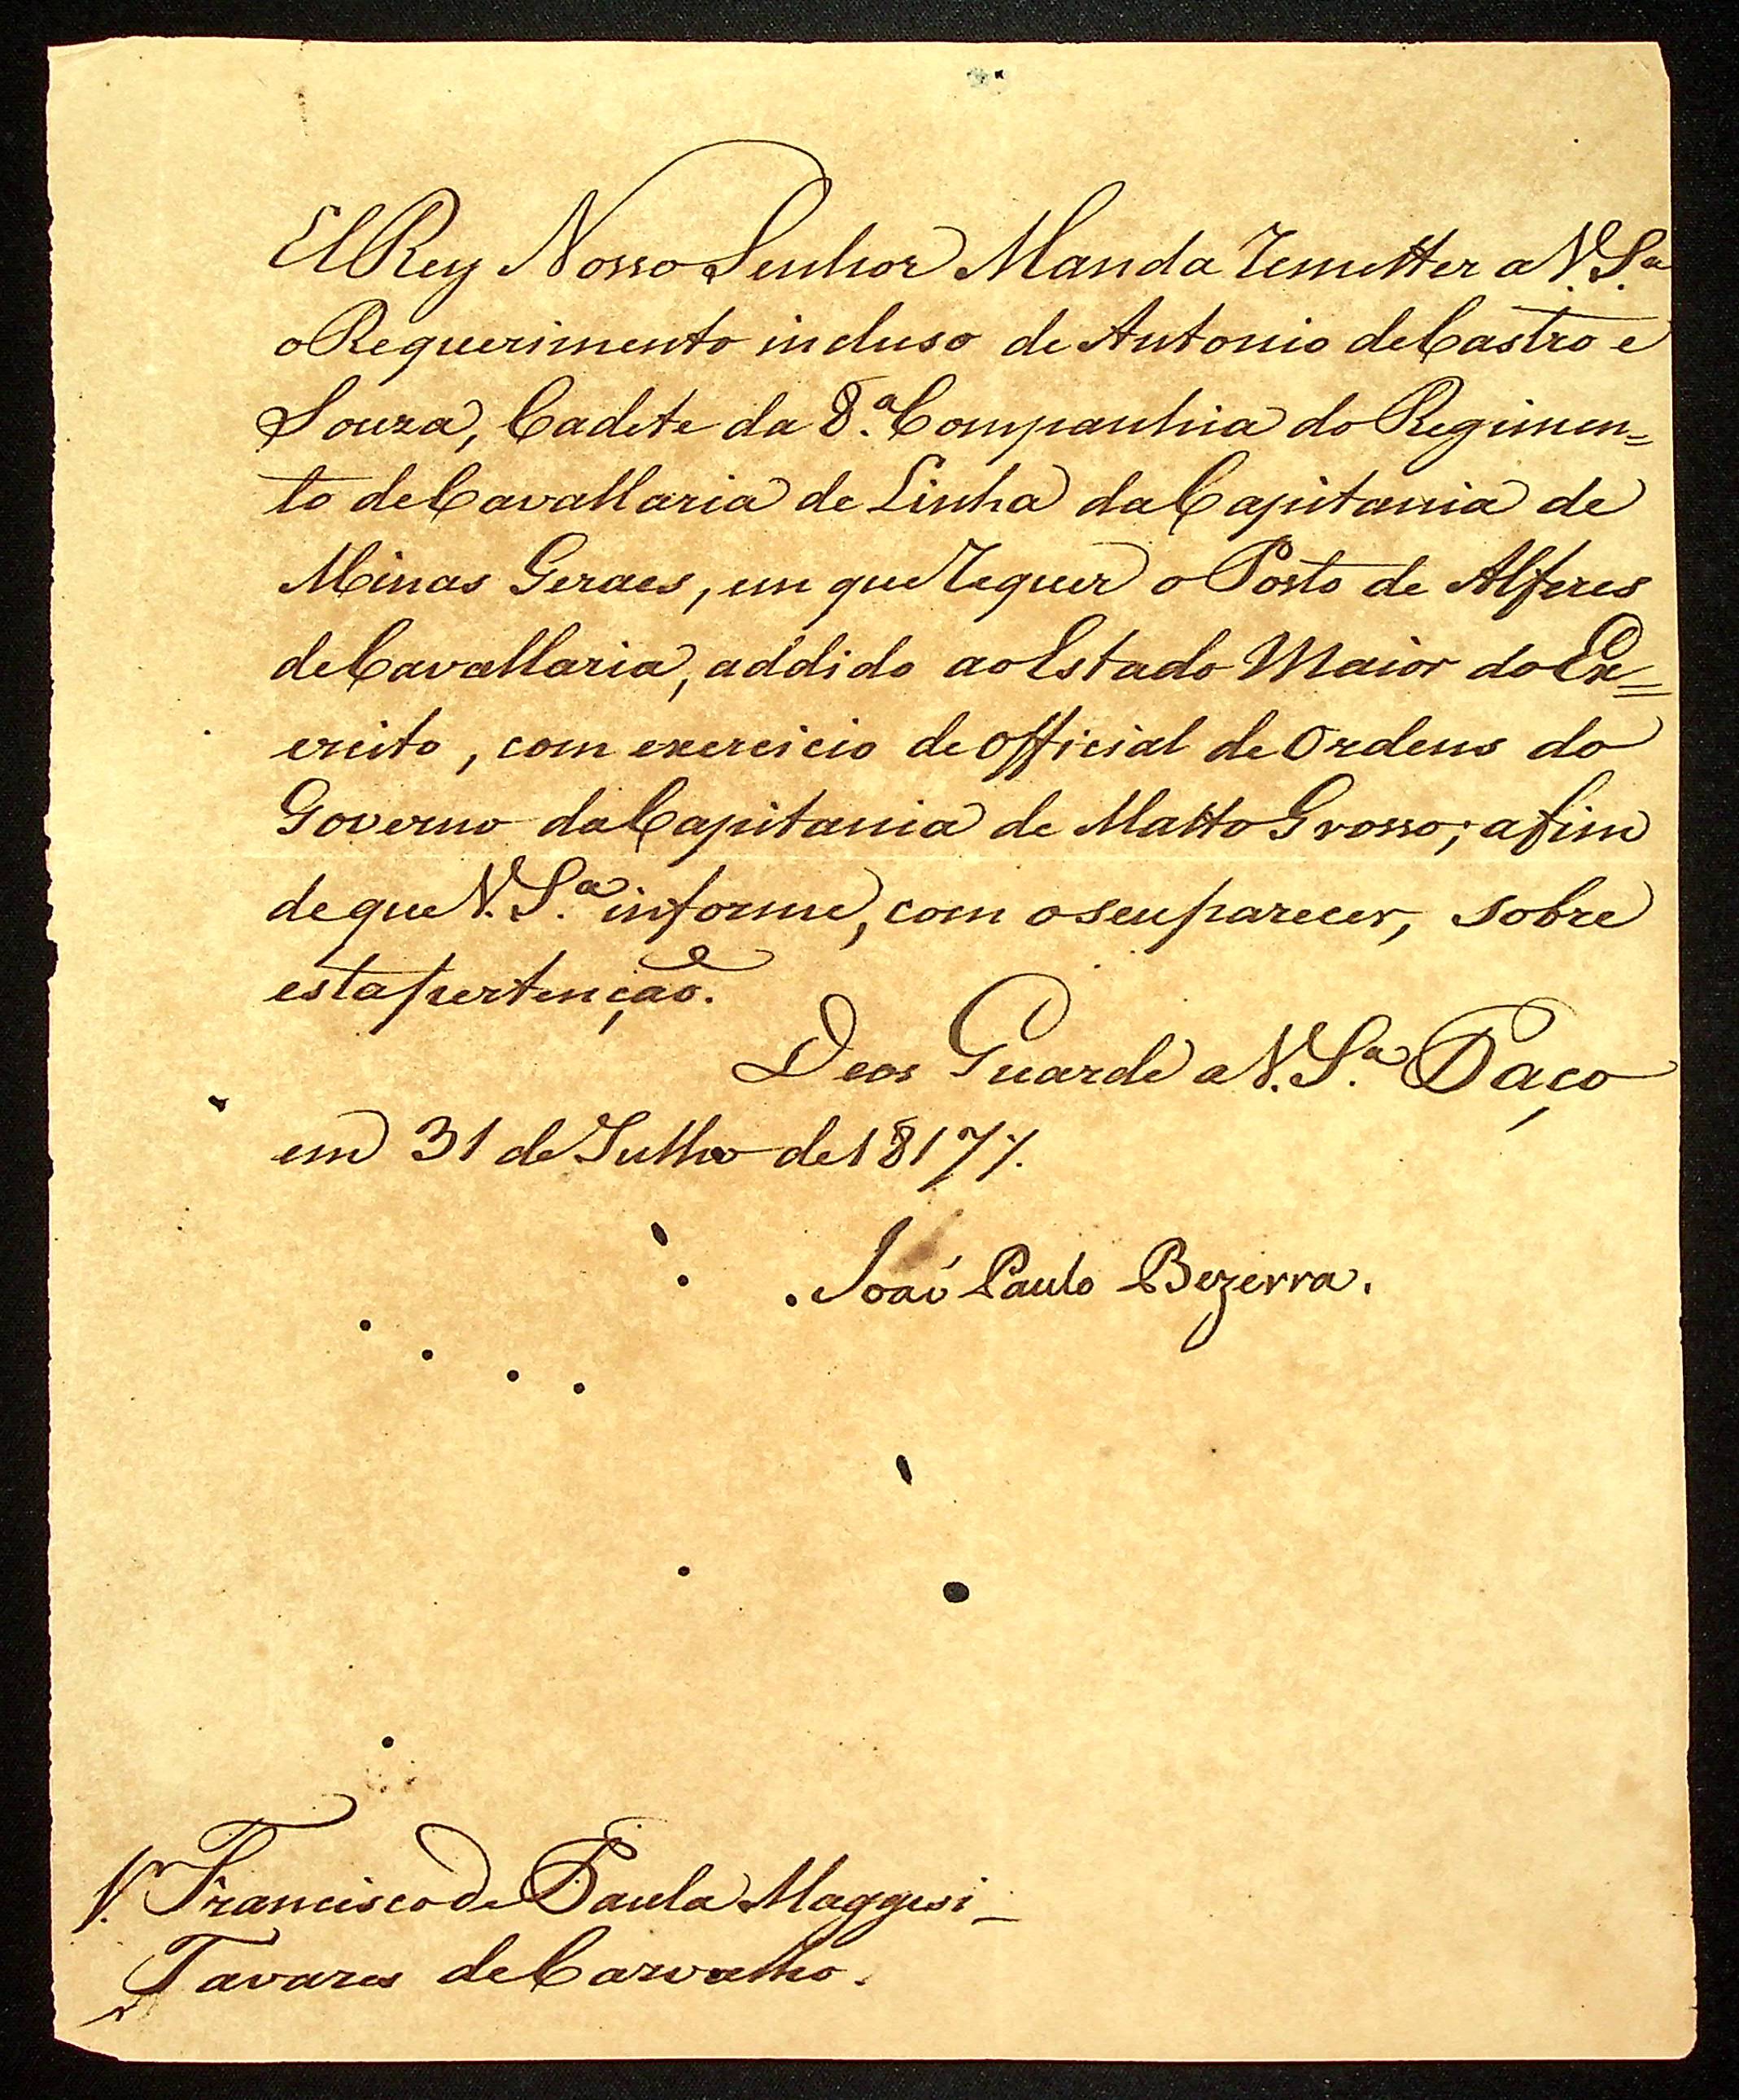 El Rey Nosso Senhor Manda remetter a V. S.ª
o Requerimento incluso de Antonio de Castro e
Souza, Cadete da 8.ª Companhia do Regimen=
to de Cavallaria de Linha da Capitania de
Minas Geraes, em que requer o Posto de Alferes
de Cavallaria, addido ao Estado Maior do Ex=
ercito, com exercicio de official de Ordens do
Governo da Capitania de Matto Grosso; a fim
de que V. S.ª informe, com o seu parecer, sobre
esta pertenção.
Deos Guarde a V. S.ª Paço
em 31 de Julho de 1817.
João Paulo Bezerra.
Francisco de Paula Maggesi
Tavares de Carvalho.